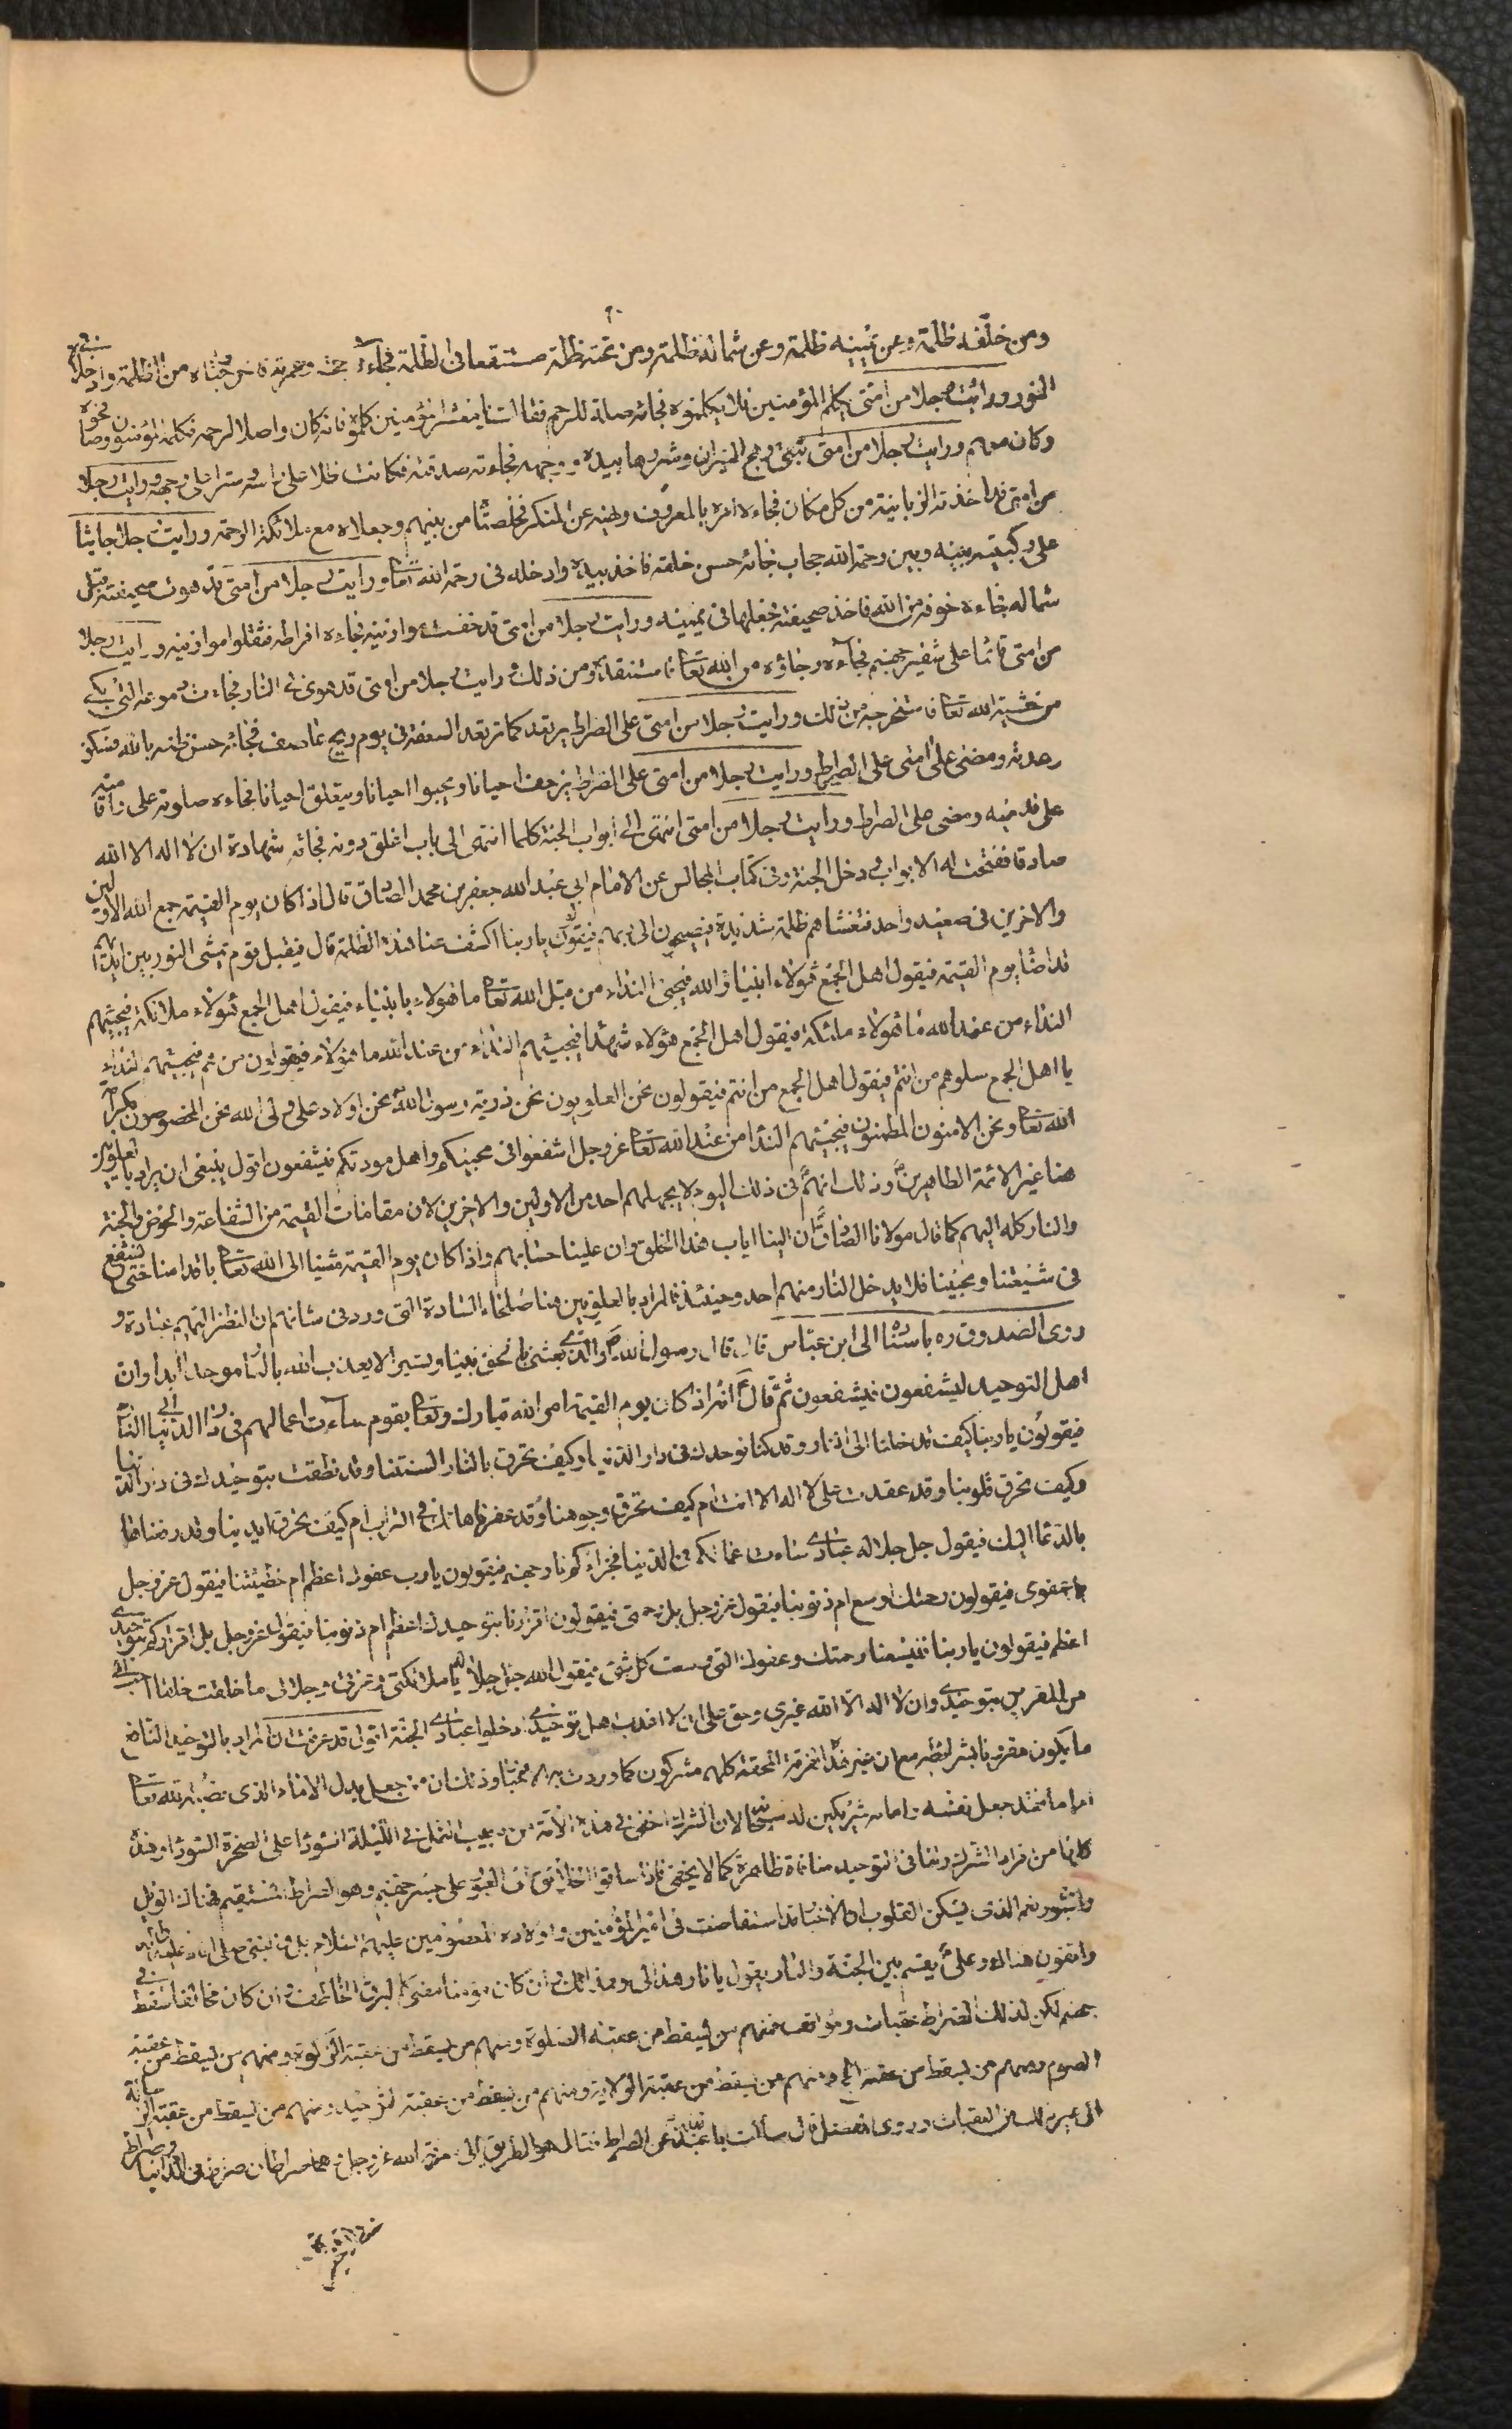 ومن خلفه ظلمة وعن يمينه ظلمة وعن شماله ظلمة ومن تحته ظلمة مستنقعا في الظلمة فجاءه حجه وعمرته فاخرجاه من الظلمة وادخلاه في
النور ورايت رجلا من امتي يكلم المؤمنين فلا يكلمونه فجائه صلته للرحم فقال يا معشر المؤمنين كلموه فانه كان واصلا لرحمه فكلمه المؤمنون وصافحوه
وكان معهم ورايت رجلا من امتي يتقي وهج النيران وشررها بيده ووجهه فجاءته صدقته فكانت ظلا على راسه وسترا على وجهه ورايت رجلا
من امتي قد اخذته الزبانية من كل مكان فجاءه امره بالمعروف ونهيه عن المنكر فخلصاه من بينهم وجعلاه مع ملائكة الرحمة ورايت رجلا جاثيا
على ركبتيه بينه وبين رحمة الله حجاب فجائه حسن خلقه فاخذ بيده وادخله في رحمة الله تعالى ورايت رجلا من امتي قد هوت صحيفته قبل
شماله فجاءه خوفه من الله فاخذ صحيفته فجعلها في يمينه ورايت رجلا من امتي قد خفت موازينه فجاءه افراطه فثقلوا موازينه ورايت رجلا
من امتي قائما على شفير جهنم فجاءه رجاؤه من الله تعالى فاستنقذه ومن ذلك ورايت رجلا من امتي قد هوى في النار فجاءت دموعه التي بكى
من خشية الله تعالى فاستخرجته من ذلك ورايت رجلا من امتي على الصراط يرتعد كما ترتعد السعفة في يوم ريح عاصف فجائه حسن ظنه بالله فسكن
رعدته ومضى على الصراط ورايت رجلا من امتي على الصراط يزحف احيانا ويحبوا احيانا ويتعلق احيانا فجاءه صلوته علي فاقامته
على قدميه ومضى على الصراط ورايت رجلا من امتي انتهى الى ابواب الجنة كلما انتهى الى باب اغلق دونه فجائه شهادة ان لا اله الا الله
صادقا ففتحت له الابواب ودخل الجنة وفي كتاب المجالس عن الامام ابي عبد الله جعفر بن محمد الصادق قال اذا كان يوم القيمة جمع الله الاولين
والاخرين في صعيد واحد فتغشاهم ظلمة شديدة فيضجون الى ربهم فيقولون يا ربنا اكشف عنا هذه الظلمة قال فيقبل قوم يمشي النور بين ايديهم
قد اضاء يوم القيمة فيقول اهل الجمع هؤلاء انبياء الله فيجئ النداء من قبل الله تعالى ما هؤلاء بانبياء فيقول اهل الجمع هؤلاء ملائكة فيجيئهم
النداء من عند الله ما هؤلاء ملئكة فيقول اهل الجمع هؤلاء شهداء فيجيئهم النداء من عند الله ما هؤلاء فيقولون من هم فيجيئهم النداء
يا اهل الجمع سلوهم من انتم فيقول اهل الجمع من انتم فيقولون نحن العلويون نحن ذرية رسول الله نحن اولاد علي ولي الله نحن المخصوصون بكرامة
الله تعالى ونحن الامنون المطمئنون فيجيئهم النداء من عند الله تعالى عز وجل اشفعوا في محبيكم واهل مودتكم فيشفعون اقول ينبغي ان يراد بالعلويين
هنا غير الائمة الطاهرين وذلك انهم في ذلك اليوم لا يجهلهم احد من الاولين والاخرين لان مقامات القيمة من الشفاعة والحوض والجنة
والنار كله اليهم كما قال مولانا الصادق ان الينا اياب هذا الخلق وان علينا حسابهم واذا كان يوم القيمة مشينا الى الله تعالى باقدامنا حتى نشفع
في شيعتنا ومحبينا فلا يدخل النار منهم احد وحينئذ فالمراد بالعلويين هنا صلحاء السادة التي ورد في شانهم ان النظر اليهم عبادة و
روى الصدوق ره باسناده الى ابن عباس قال قال رسول الله ص والذي بعثني بالحق نبيا وبشيرا لا يعذب الله بالنار موحدا ابدا وان
اهل التوحيد ليشفعون فيشفعون ثم قال انه اذا كان يوم القيمة امر الله تبارك وتعالى بقوم ساءت اعمالهم في دار الدنيا الى النار
فيقولون يا ربنا كيف تدخلنا الى النار وقد كنا نوحدك في دار الدنيا وكيف تحرق بالنار السنتنا وقد نطقت بتوحيدك في دار الدنيا
وكيف تحرق قلوبنا وقد عقدت على لا اله الا انت ام كيف تحرق وجوهنا وقد عفرناها لك في التراب ام كيف تحرق ايدينا وقد رفعناها
بالدعاء اليك فيقول جل جلاله عبادي ساءت اعمالكم في الدنيا فجزاؤكم نار جهنم فيقولون يا رب عفوك اعظم ام خطيئتنا فيقول عز وجل
بل عفوي فيقولون رحمتك اوسع ام ذنوبنا فيقول عز وجل بل رحمتي فيقولون اقرارنا بتوحيدك اعظم ام ذنوبنا فيقول عز وجل بل اقراركم بتوحيدي
اعظم فيقولون يا ربنا فليسعنا رحمتك وعفوك التي وسعت كل شئ فيقول الله جل جلاله يا ملائكتي وعزتي وجلالي ما خلقت خلقا احب الي
من المقرين بتوحيدي وان لا اله الا الله غيري وحق علي ان لا اعذب اهل توحيدي ادخلوا عبادي الجنة اقول قد عرفت ان المراد بالتوحيد النافع
ما يكون مقرونا بشرائطه مع ان غير هذه الفرقة المحقة كلهم مشركون كما وردت به وذلك ان من جعل بدل الامام الذي نصبه الله تعالى
اماما فقد جعل نفسه وامامه شريكين لله سبحانه لان الشرك اخفى في هذه الامة من دبيب النمل في الليلة السوداء على الصخرة السوداء وهذا
كلها من افراد الشرك وتنافي التوحيد منافاة ظاهرة كما لا يخفى فاذا ساقوا الخلائق الى العبور على جسر جهنم وهو الصراط المستقيم فهناك الويل
والثبور نعم الذي يسكن القلوب ان الاخبار قد استفاضت في امير المؤمنين واولاده المعصومين عليهم السلام
واقفون هناك وعلي يقسم بين الجنة والنار يقول يا نار هذا لي وهذا لك فان كان مؤمنا مضى كالبرق الخاطف وان كان مخالفا سقط في
جهنم لكن لذلك الصراط عقبات ومواقف فمنهم من يسقط من عقبة الصلوة ومنهم من يسقط من عقبة الزكوة ومنهم من يسقط من عقبة
الصوم ومنهم من يسقط من عقبة الحج ومنهم من يسقط من عقبة الولاية ومنهم من يسقط من عقبة التوحيد ومنهم من يسقط من عقبة
الى غير ذلك من العقبات وروى المفضل قال سألت ابا عبد الله عن الصراط فقال هو الطريق الى معرفة الله عز وجل وهما صراطان صراط في الدنيا وصراط